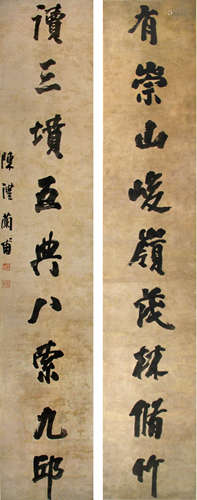 有崇山峻嶺茂林脩竹
讀三墳五典八索九邱
陳澧蘭甫